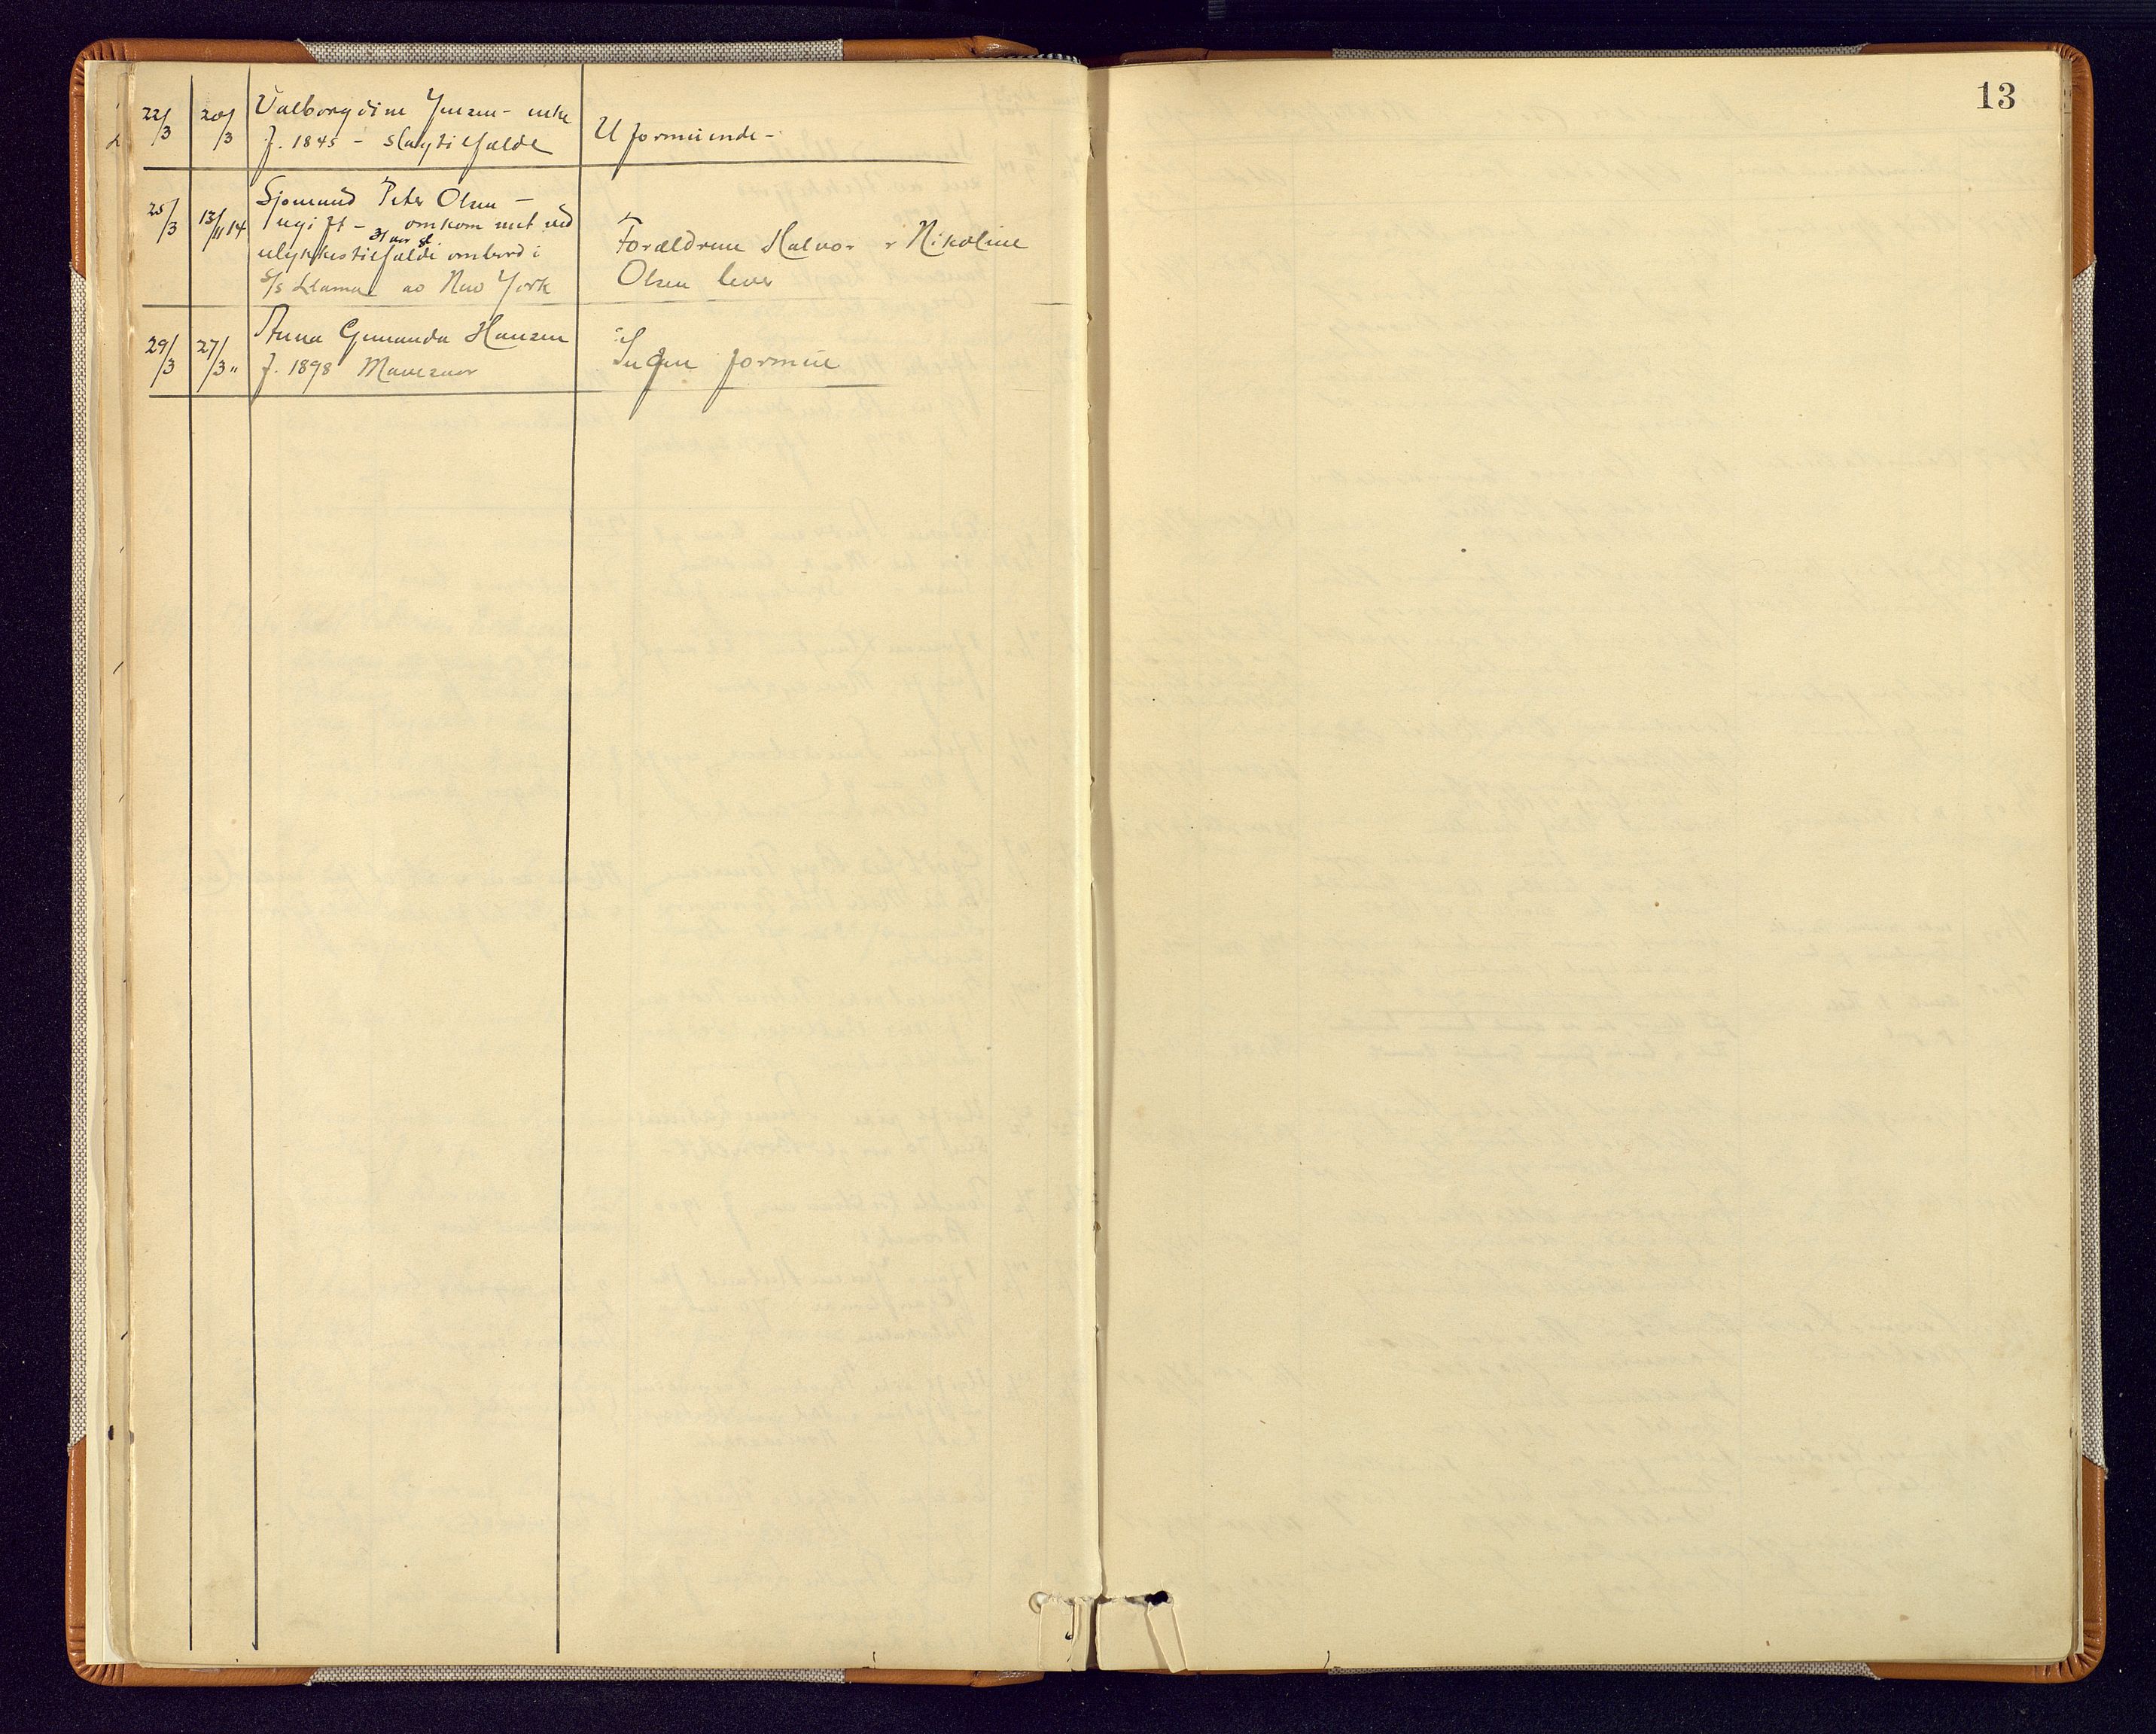 13
22/3 20/3 Valborg Jensen - enke
f. 1845 - Slagtilfælde Uformuende -
25/3 13/11 14 Sjømand Peter Olsen -
ugift - omkom ved
31 aar gl.
ulykkestilfælde ombord i
S/S Llama av New York
Forældrene Halvor & Nikoline
Olsen lever
29/3 27/3 " Anna Hansen
f. 1898 Mavesaar
Ingen formue